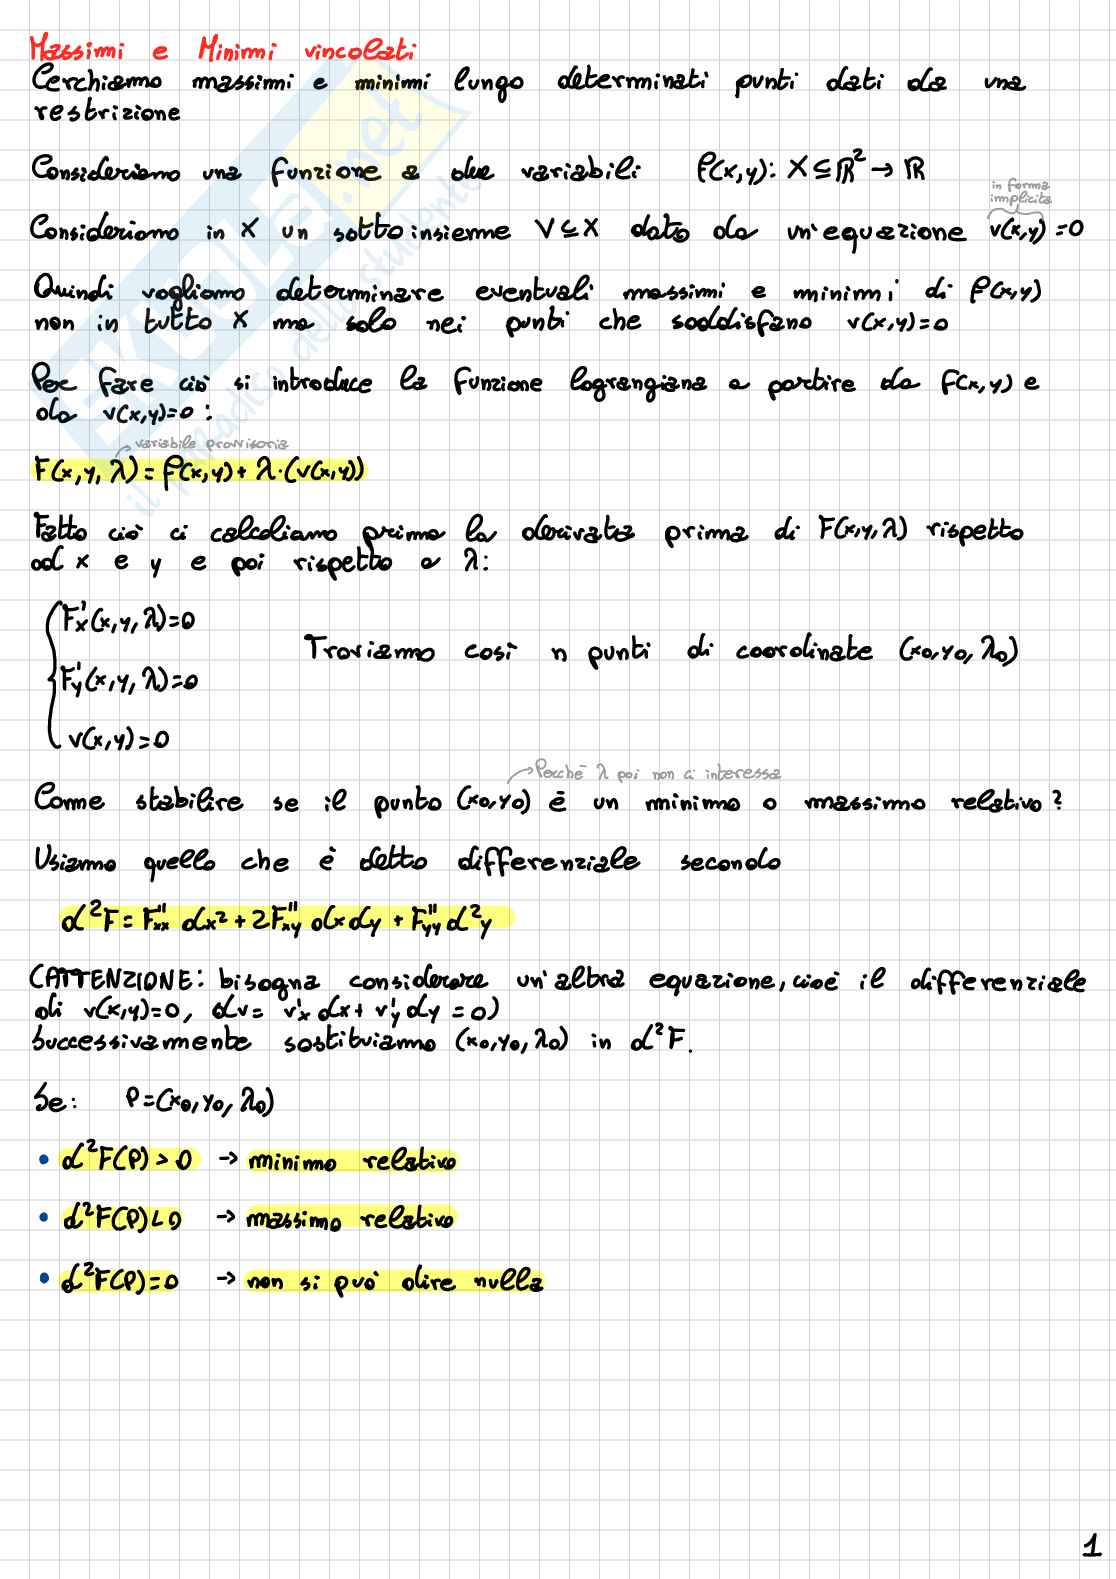 Massimi e Minimi vincolati
Cerchiamo massimi e minimi lungo determinati punti dati da una
restrizione
Consideriamo una funzione a due variabili f(x,y): X⊆ℝ²→ℝ
in forma
implicita
Consideriamo in X un sottoinsieme V⊆X dato da un'equazione v(x,y)=0
Quindi vogliamo determinare eventuali massimi e minimi di f(x,y)
non in tutto X ma solo nei punti che soddisfano v(x,y)=0
Per fare ciò si introduce la funzione lagrangiana a partire da f(x,y) e
da v(x,y)=0:
variabile provvisoria
F(x,y,λ)=f(x,y)+λ·(v(x,y))
Fatto ciò ci calcoliamo prima la derivata prima di F(x,y,λ) rispetto
ad x e y e poi rispetto a λ:
F'x(x,y,λ)=0
Troviamo così n punti di coordinate (x0,y0,λ0)
F'y(x,y,λ)=0
v(x,y)=0
Perché λ poi non ci interessa
Come stabilire se il punto (x0,y0) è un minimo o massimo relativo?
Usiamo quello che è detto differenziale secondo
d²F= F''xx dx²+2F''xy dx dy + F''yy d²y
(ATTENZIONE: bisogna considerare un'altra equazione, cioè il differenziale
di v(x,y)=0, dv= v'x dx+ v'y dy =0)
Successivamente sostituiamo (x0,y0,λ0) in d²F.
Se: P=(x0,y0,λ0)
• d²F(P)>0 → minimo relativo
• d²F(P)<0 → massimo relativo
• d²F(P)=0 → non si può dire nulla
1